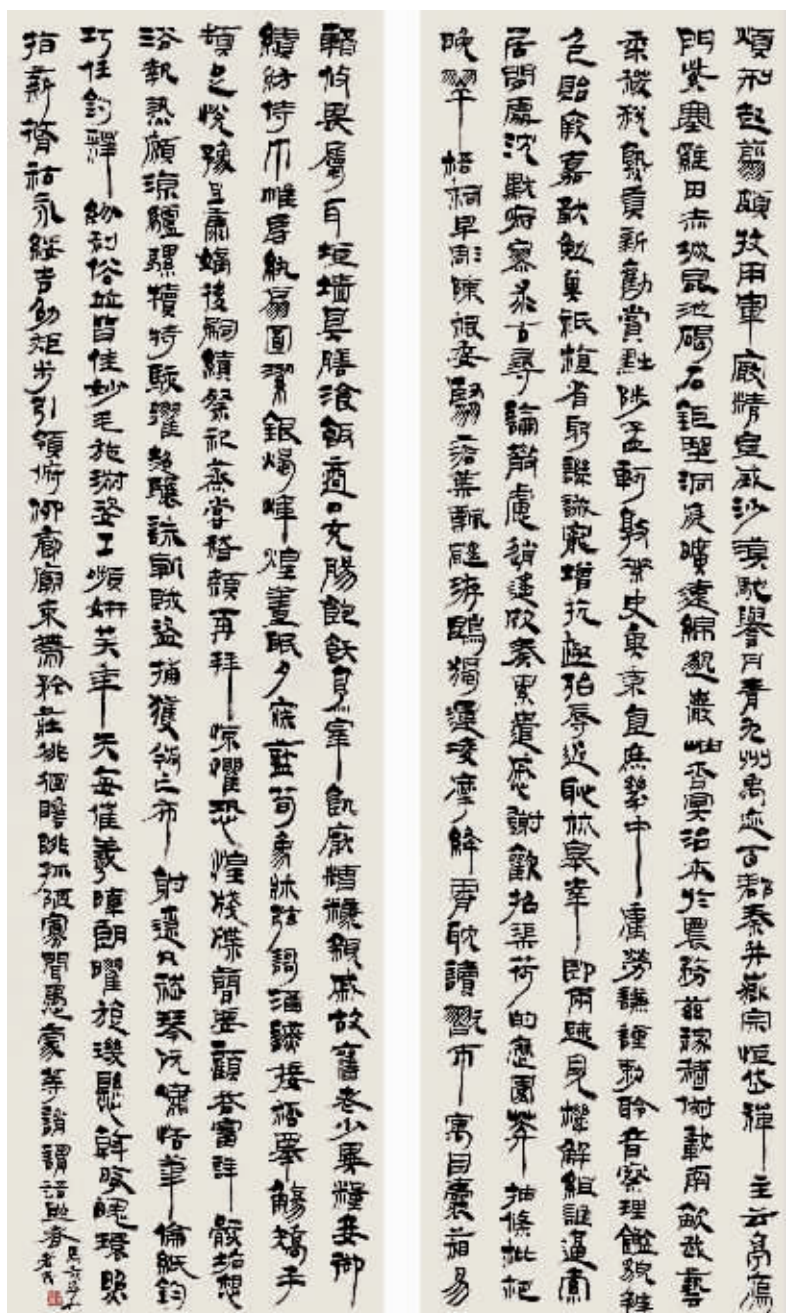 煩刑起翦頗牧用軍最精宣威沙漠馳譽丹青九州禹迹百郡秦并嶽宗恒岱禪主云亭鴈
門紫塞雞田赤城昆池碣石鉅野洞庭曠遠綿邈巖岫杳冥治本於農務茲稼穡俶載南畝我藝
黍稷稅熟貢新勸賞黜陟孟軻敦素史魚秉直庶幾中庸勞謙謹勅聆音察理鑑貌辨
色貽厥嘉猷勉其祗植省躬譏誡寵增抗極殆辱近恥林皋幸即兩疏見機解組誰逼索
居閒處沈默寂寥求古尋論散慮逍遙欣奏累遣慼謝歡招渠荷的歷園莽抽條枇杷
晚翠梧桐早彫陳根委翳落葉飄颻游鵾獨運凌摩絳霄耽讀翫市寓目囊箱易
輶攸畏屬耳垣墻具膳飡飯適口充腸飽飫烹宰飢厭糟糠親戚故舊老少異糧妾御
績紡侍巾帷房紈扇圓潔銀燭煒煌晝眠夕寐藍筍象牀弦歌酒讌接杯舉觴矯手
頓足悅豫且康嫡後嗣續祭祀蒸嘗稽顙再拜悚懼恐惶牋牒簡要顧答審詳骸垢想
浴執熱願涼驢騾犢特駭躍超驤誅斬賊盜捕獲叛亡布射遼丸嵇琴阮嘯恬筆倫紙鈞
巧任釣釋紛利俗並皆佳妙毛施淑姿工嚬妍笑年矢每催羲暉朗曜旋璣懸斡晦魄環照
指薪脩祜永綏吉劭矩步引領俯仰廊廟束帶矜莊徘徊瞻眺孤陋寡聞愚蒙等誚謂語助者